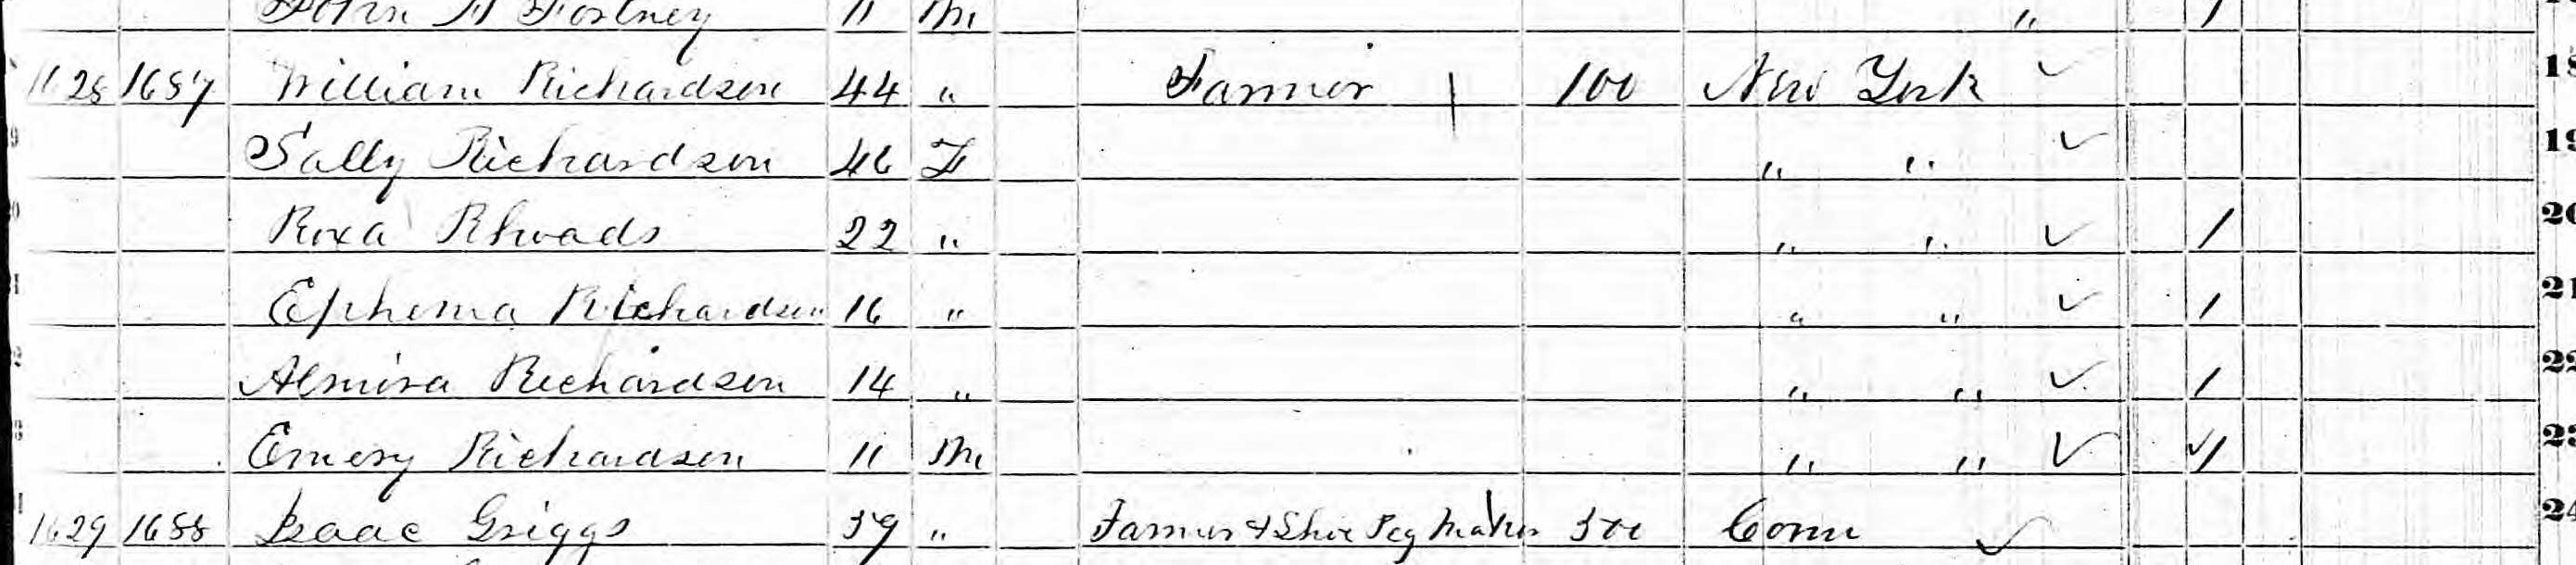 John F Fortney 11 M "
1628 1687 William Richardson 44 " Farmer 100 New York 18
Sally Richardson 46 F " " 19
Roxa Rhoads 22 " " " / 20
Ephema Richardson 16 " " " / 21
Almira Richardson 14 " " " / 22
Emery Richardson 11 M " " / 23
1629 1688 Isaac Griggs 39 " Farmer & Shoe Peg Maker 300 Conn 24